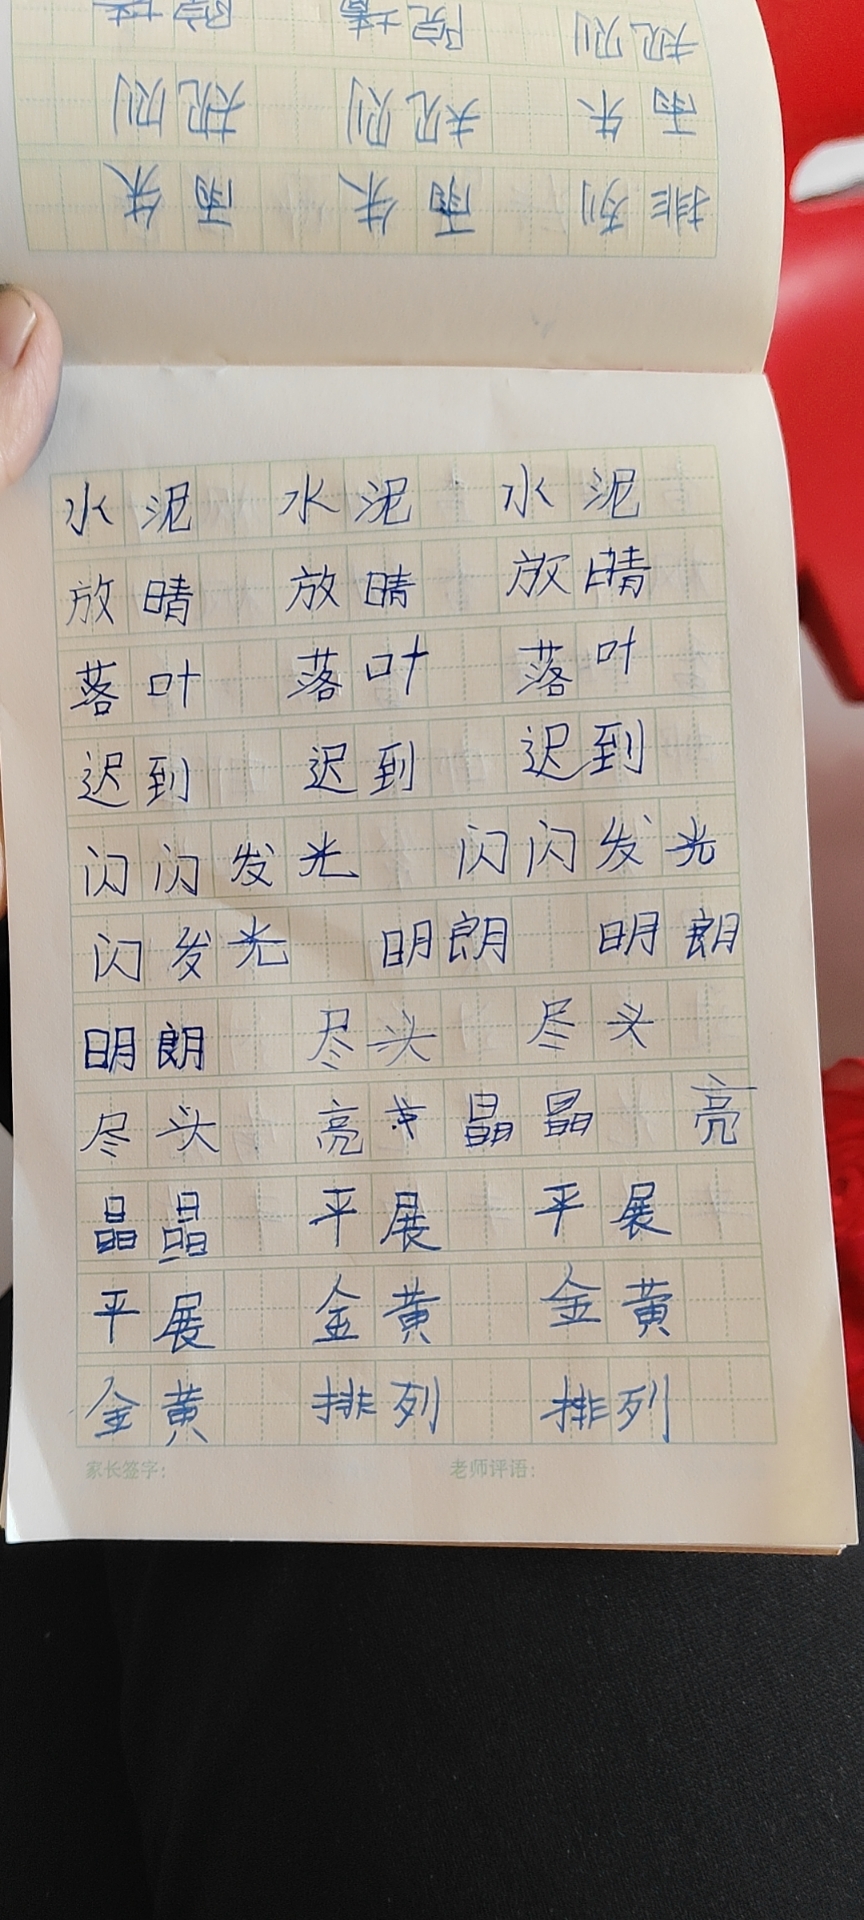 院墙 院墙 规则
规则 规则 雨朱
雨朱 雨朱 排列
水泥 水泥 水泥
放晴 放晴 放晴
落叶 落叶 落叶
迟到 迟到 迟到
闪闪发光 闪闪发光
闪发光 明朗 明朗
明朗 尽头 尽头
尽头 亮晶晶 亮
晶晶 平展 平展
平展 金黄 金黄
金黄 排列 排列
家长签字: 老师评语: